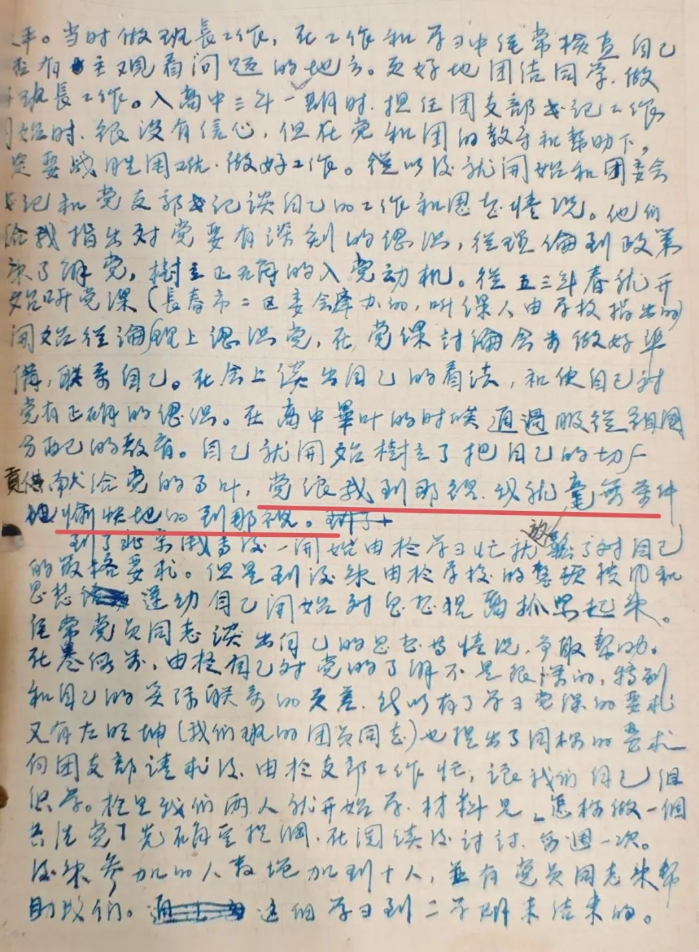 年。当时做班長工作，在工作和学习中经常检查自己
否有主观看问题的地方。更好地团结同学，做
班長工作。入高中三年一期时，担任团支部书记工作
开始时，很没有信心，但在党和团的教育和帮助下，
定要战胜困难，做好工作。从此后就開始和团委会
书记和党支部书记谈自己的工作和思想情况。他们
给我指出对党要有深刻的认识，从理倫到政策
来了解党，树立正确的入党动机。从五三年春就开
始听党课（長春市二区委会举办的，听课人由学校指出的）
開始从理論上认识党，在党课討論会前做好准
備，联系自己。在会上谈出自己的看法，和使自己对
党有正确的认识。在高中畢业的时候通過服从祖国
分配的教育。自己就開始樹立了把自己的切
貢献给党的事业，党派我到那裡，我就毫無条件
地愉快地到那裡。
到了北京俄专後，一開始由於学习忙就放鬆了对自己
的严格要求。但是到後来由於学校的整顿校风和
思想运动自己開始对思想独立抓紧起来。
经常党员同志谈出自己的思想情况，争取帮助。
在暑假前，由於自己对党的了解不是很深的，特别
和自己的实际联系的更差，所以有了学习党课的要求
又有左旺坤（我们班的团员同志）也提出了同样的要求
向团支部请求後，由於支部工作忙，让我们自己组
织学。於是我们两人就开始学，材料是「怎样做一個
共产党员」先确定提纲，在阅读後讨讨，每週一次。
後来参加的人数增加到十人，並有党员同志来帮
助我们。这個学习到二学期末结束的。